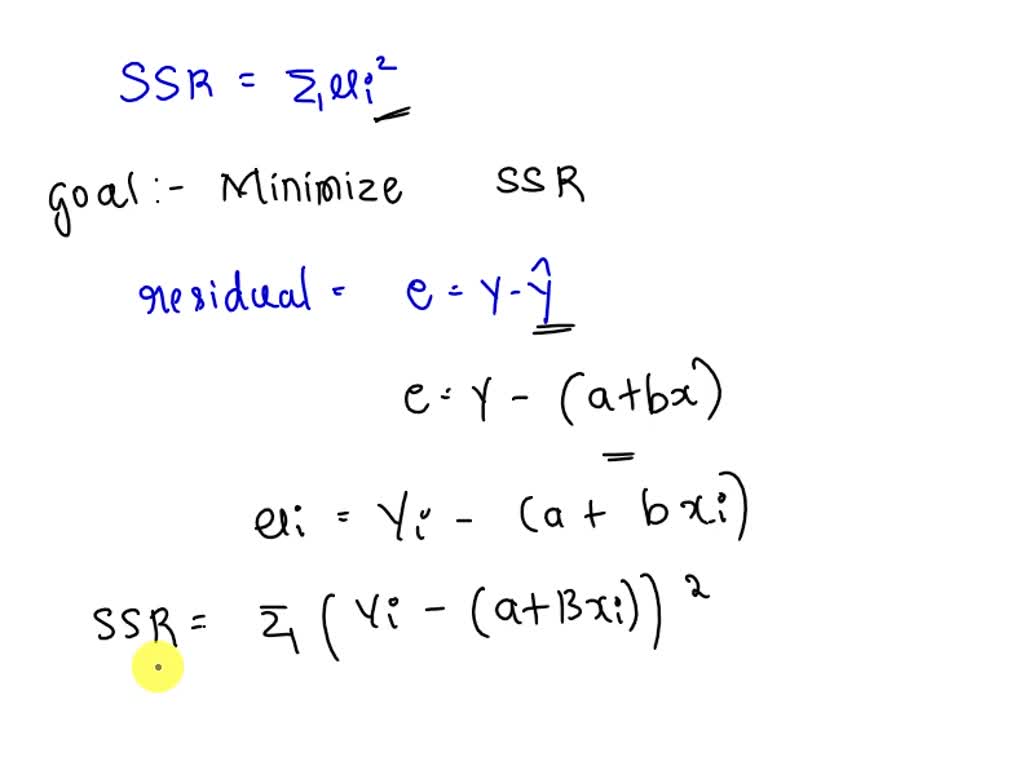 SSR = Σ ei²
goal:- Minimize SSR
residual = e = Y - Ŷ
e = Y - (a+bx)
ei = Yi - (a + bxi)
SSR = Σ (Yi - (a+Bxi))²